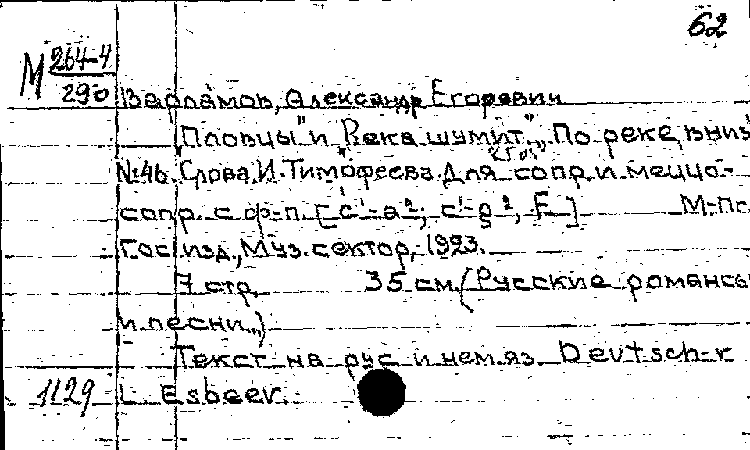 62
М 264-4
290
Варламов, Александр Егорович
"Пловцы" и "Река шумит", "По реке вниз
№ 46. Слова И. Тимофеева. Для сопр. и меццо-
сопр. с ф-п. [c¹-a²; c¹-g², F] М-Пг
Гос. изд., Муз. сектор, 1923.
7 стр. 35 см. (Русские романсы
и песни.)
Текст на рус и нем. яз. Deutsch v
1129 L. Esbeer.